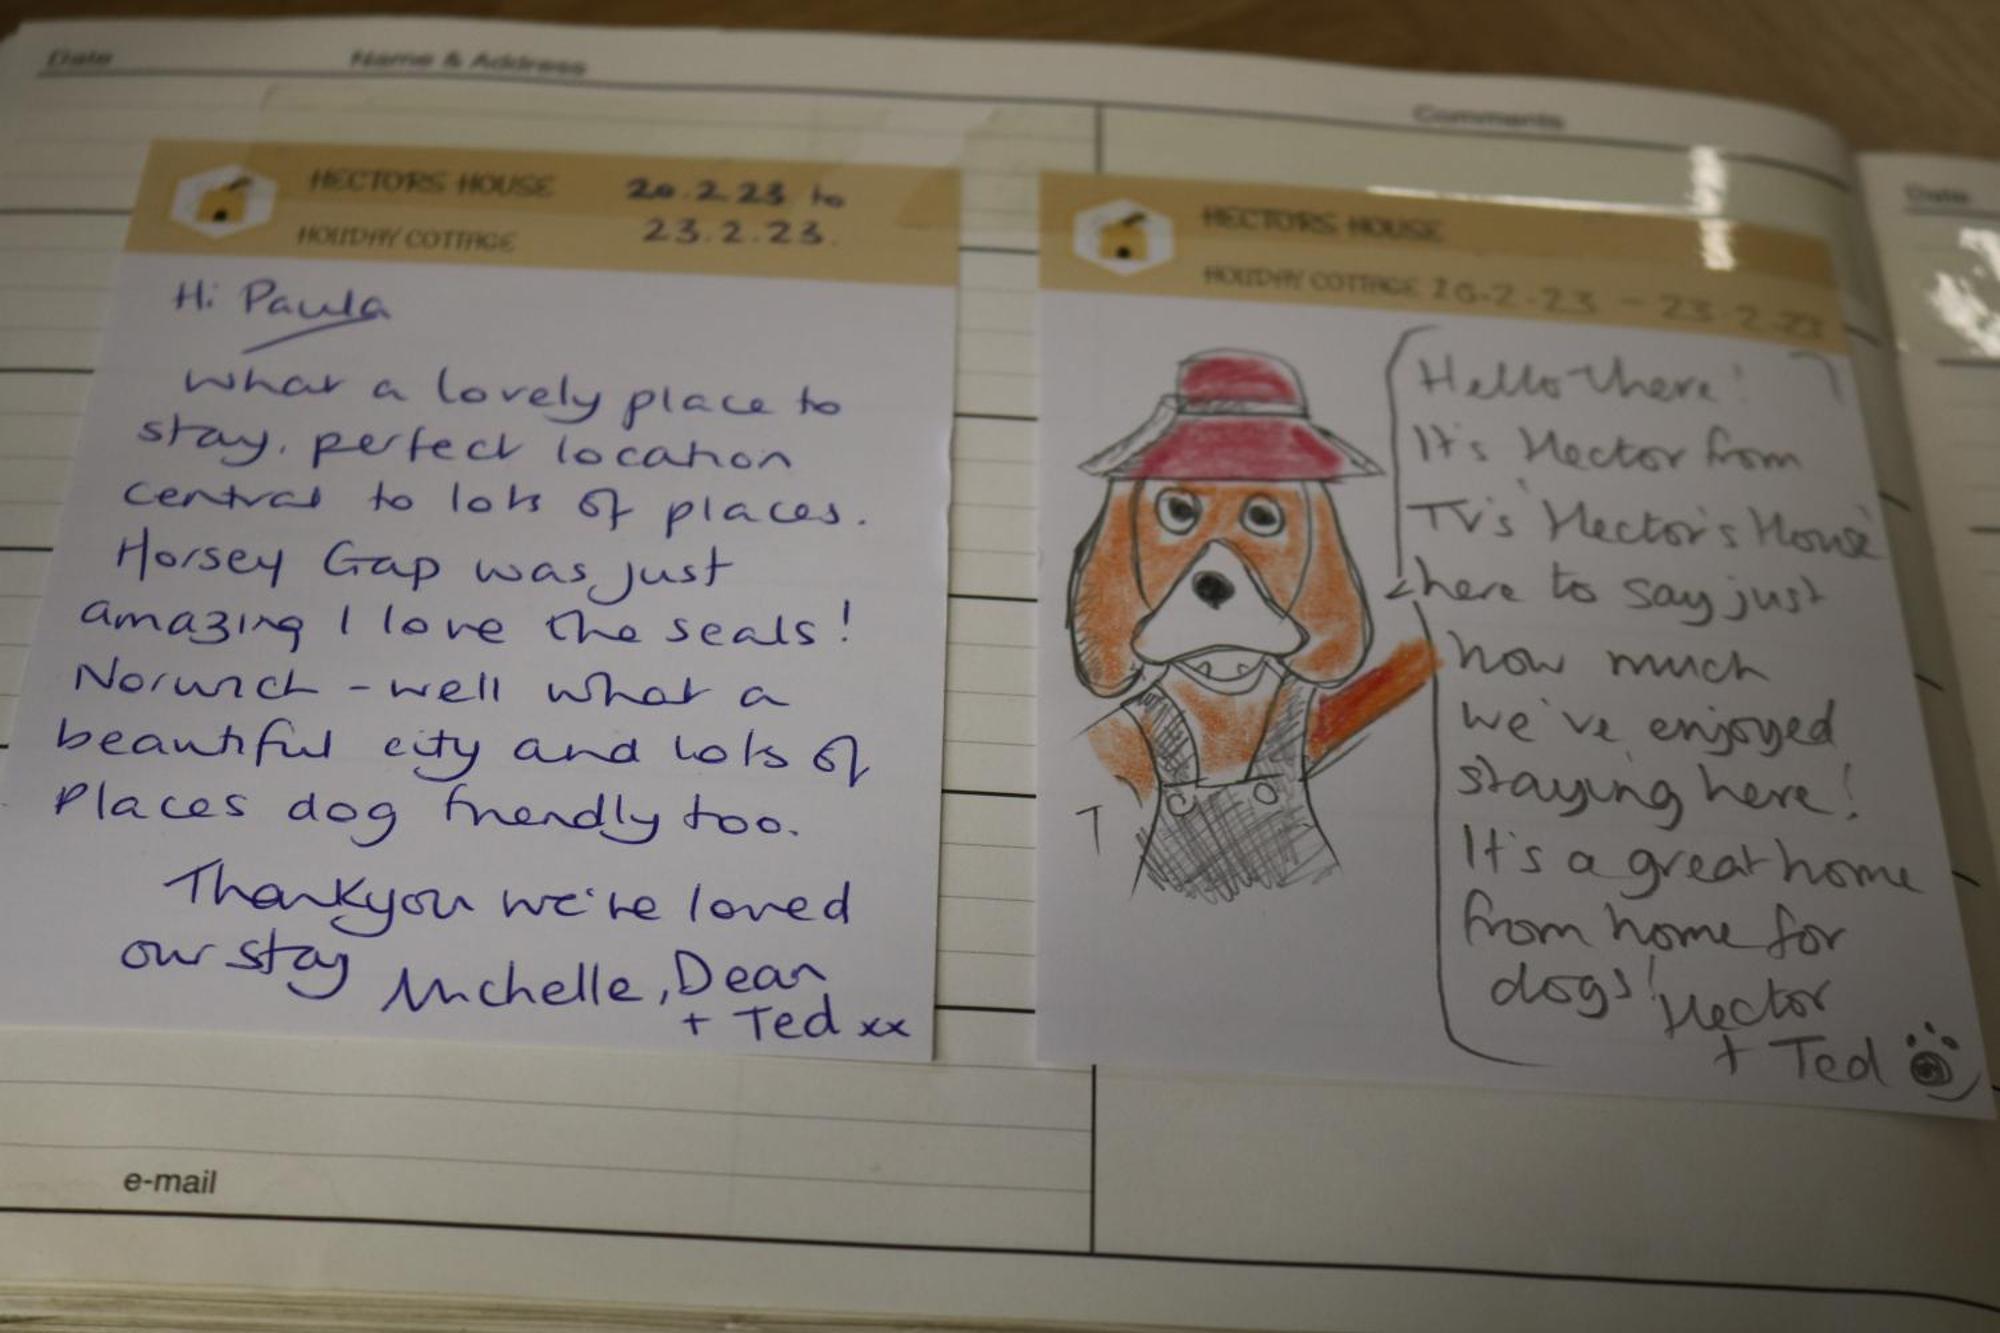 Date
Name & Address
Comments
Date
HECTORS HOUSE 20.2.23 to
HOLIDAY COTTAGE 23.2.23.
Hi Paula
What a lovely place to
stay. perfect location
central to lots of places.
Horsey Gap was just
amazing I love the seals!
Norwich - well what a
beautiful city and lots of
Places dog friendly too.
Thankyou we've loved
our stay Michelle, Dean
+ Ted xx
HECTORS HOUSE
HOLIDAY COTTAGE 20-2-23 - 23-2-23
Hello there!
It's Hector from
TV's 'Hector's House'
here to say just
how much
we've enjoyed
staying here!
It's a great home
from home for
dogs! Hector
+ Ted
e-mail